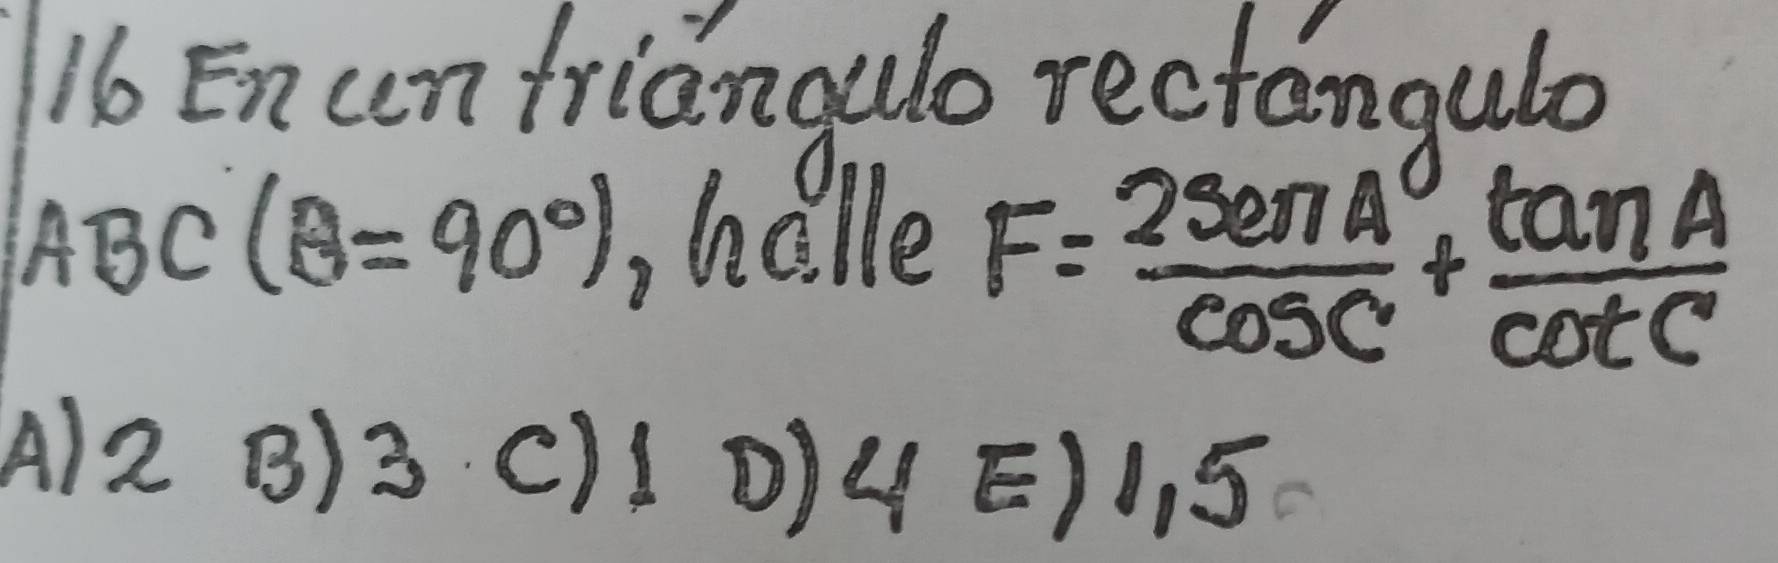 16 En un triángulo rectángulo
ABC (B=90°), halle F= 2senA/cosC + tanA/cotC
A)2 B)3 C)1 D)4 E)1,5